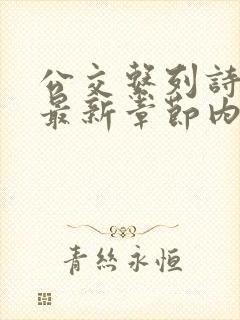 公交系列詩
最新章節内
青絲永恒